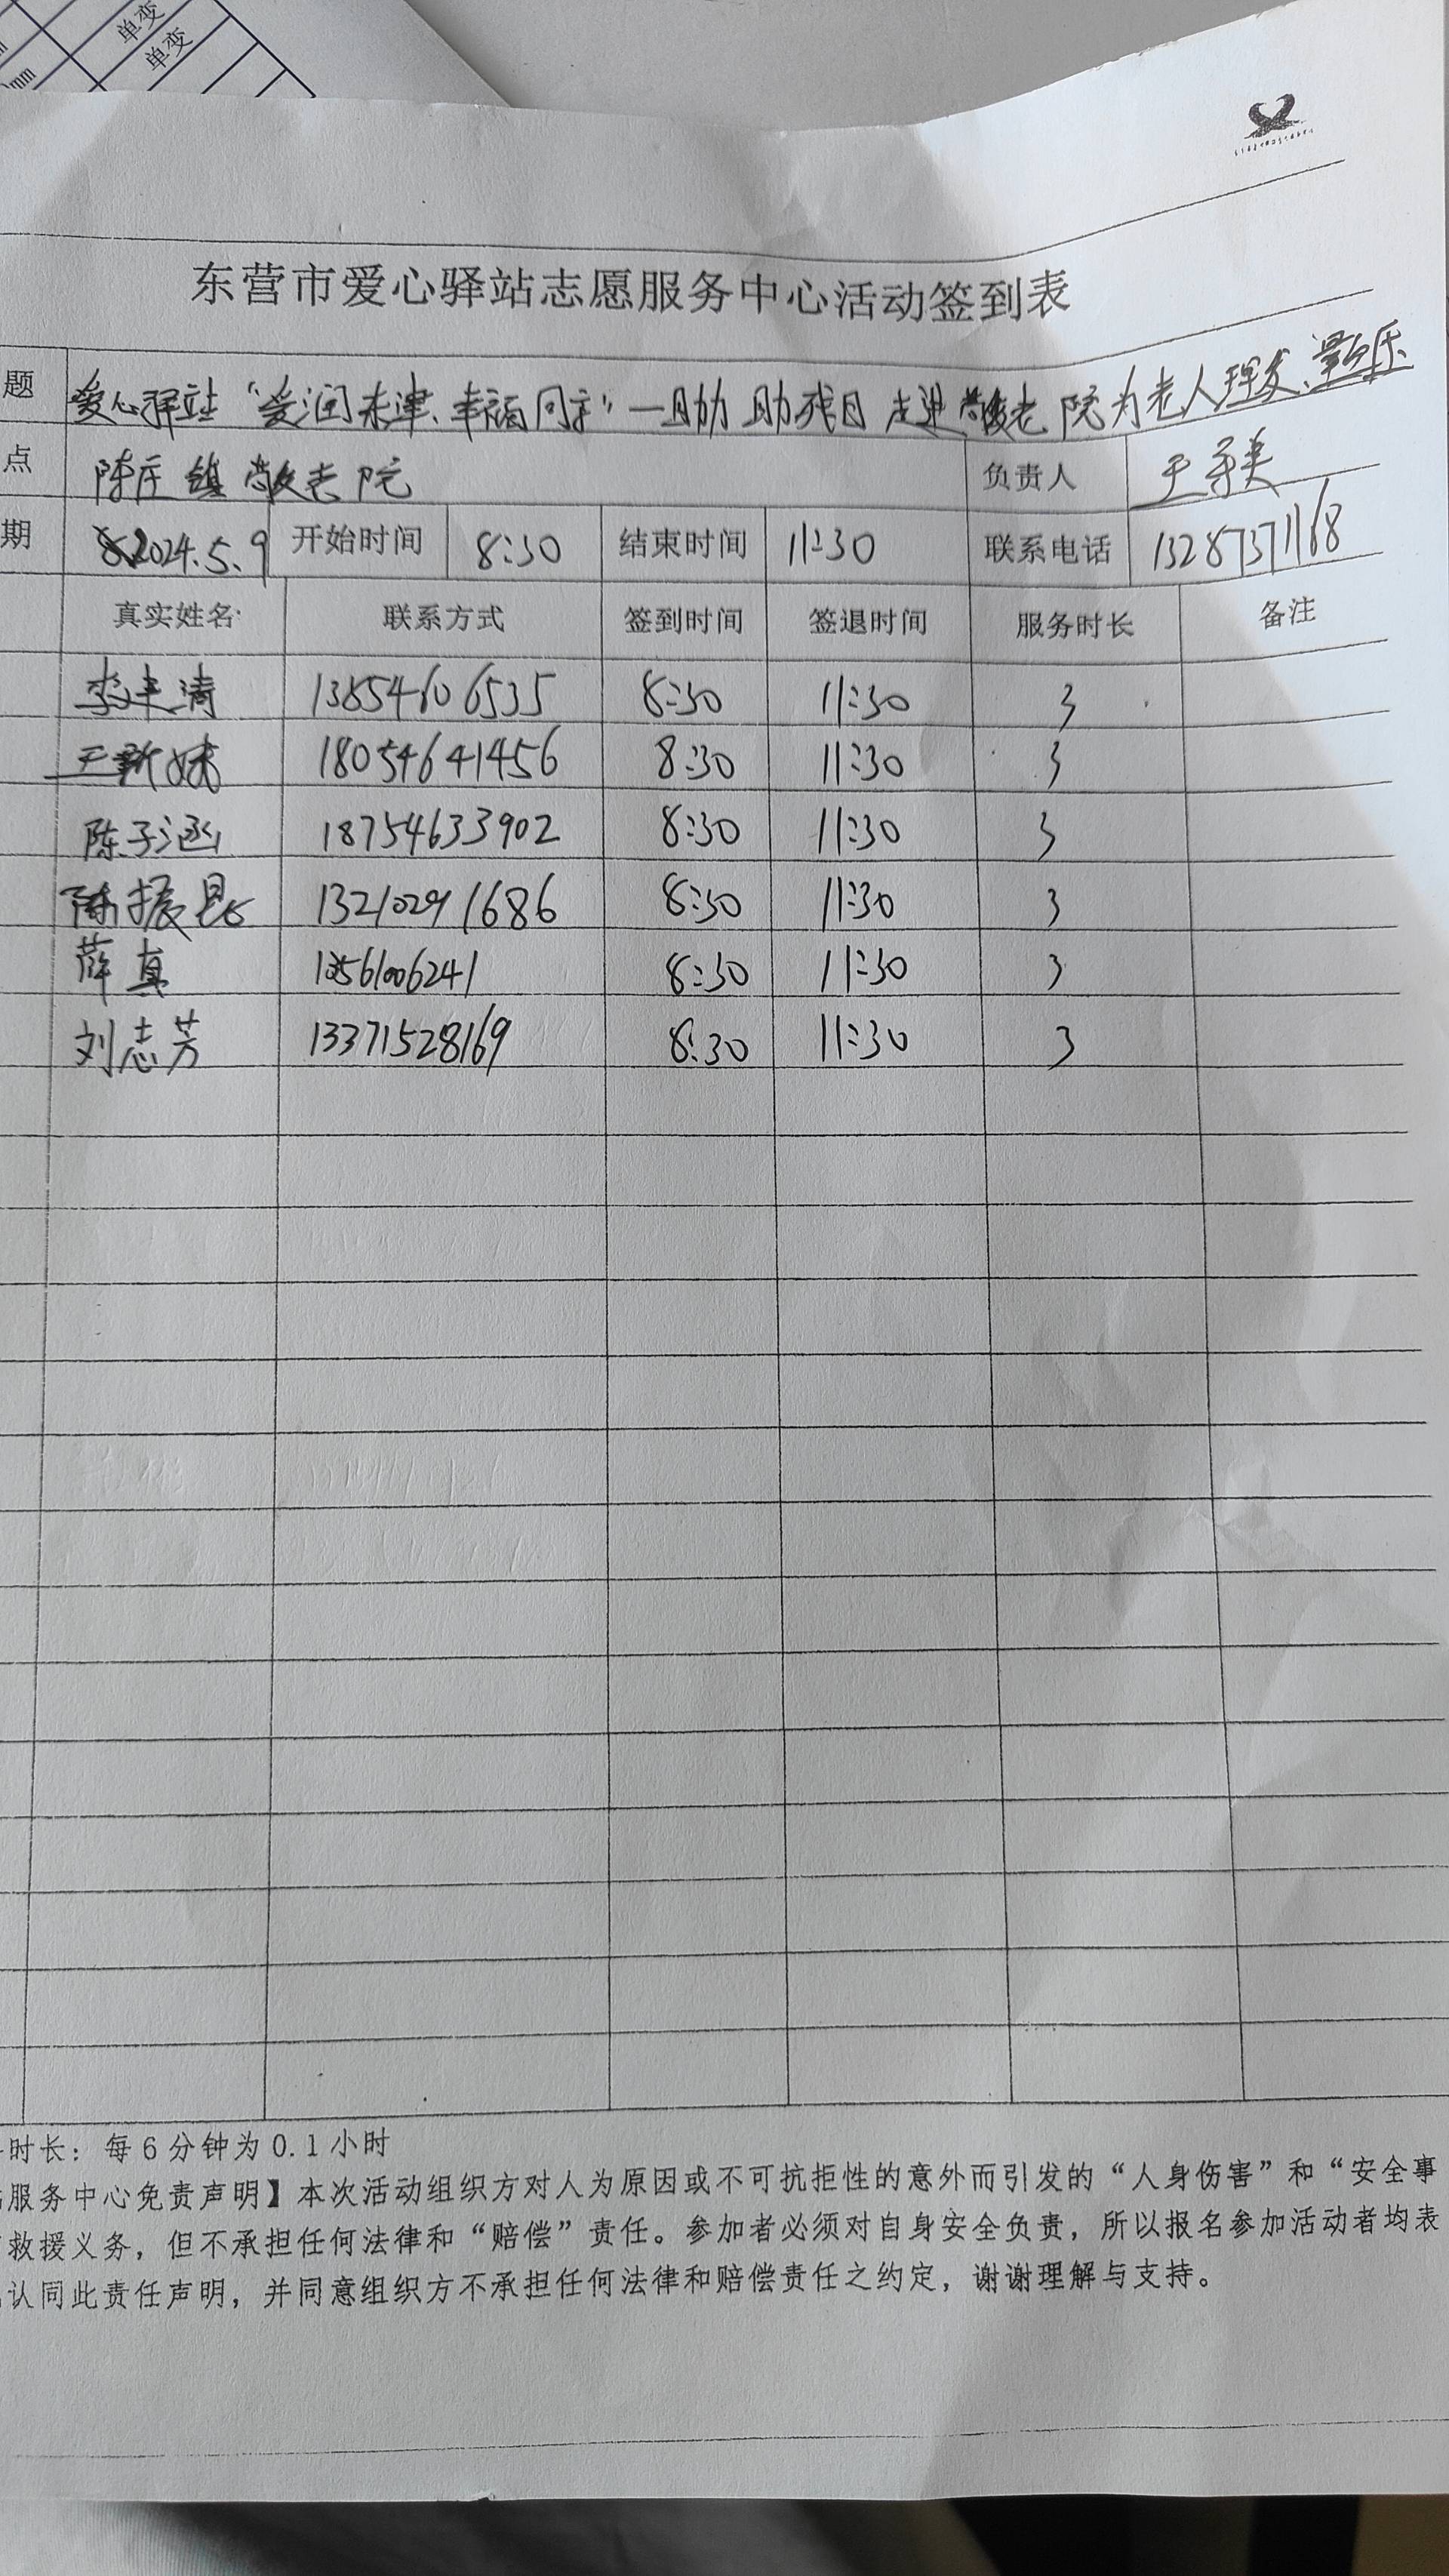 单变
单变
mm
东营市爱心驿站志愿服务中心活动签到表
题 爱心驿站“爱润未津、幸福同行”—助 助残日 走进敬老院为老人理发、
点 陈庄镇敬老院 负责人
期 2024.5.9 开始时间 8:30 结束时间 11:30 联系电话 13287371168
真实姓名 联系方式 签到时间 签退时间 服务时长 备注
清 8:30 11:30 3
王新妹 18054641456 8:30 11:30 3
陈子涵 18754633902 8:30 11:30 3
陈振昆 13210291686 8:30 11:30 3
薛真 8:30 11:30 3
刘志芳 13371528169 8:30 11:30 3
时长：每6分钟为0.1小时
服务中心免责声明】本次活动组织方对人为原因或不可抗拒性的意外而引发的“人身伤害”和“安全事
救援义务，但不承担任何法律和“赔偿”责任。参加者必须对自身安全负责，所以报名参加活动者均表
认同此责任声明，并同意组织方不承担任何法律和赔偿责任之约定，谢谢理解与支持。